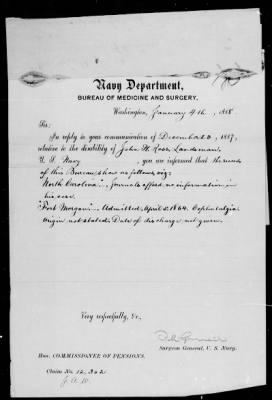 Navy Department,
BUREAU OF MEDICINE AND SURGERY,
Washington, January 4th, 1888
Sir:
In reply to your communication of December 23, 1887,
relative to the disability of John H. Ross, Landsman,
U. S. Navy, you are informed that the records
of this Bureau show as follows, viz:
"North Carolina".. Journals afford no information in
his case.
"Fort Morgan".. Admitted April 2, 1864. Cephalalgia.
Origin not stated. Date of discharge not given.
Very respectfully, &c.,
Surgeon General, U. S. Navy.
Hon. COMMISSIONER OF PENSIONS.
Claim No. 12,302